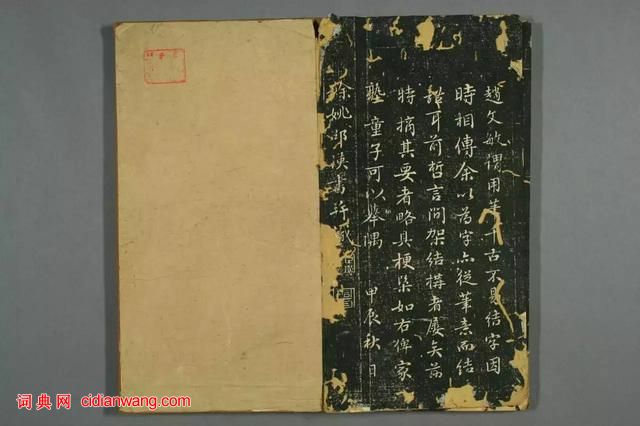 趙文敏謂用筆千古不易結字因
時相傳余以為字亦從筆素而結
耳前哲言間架結構者屢矣茲
特摘其要者略具梗槩如右俾家
塾童子可以舉隅 甲辰秋日
餘姚邵瑛書并識
词典网 cidianwang.com